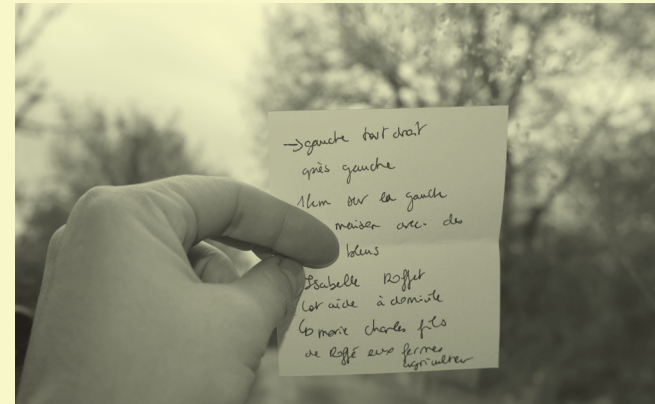 → gauche tout droit
après gauche
1km sur la gauche
maison avec des
bleus
Isabelle Roffet
aide à domicile
marie charles fils
de Roffé eux fermes
agriculteur